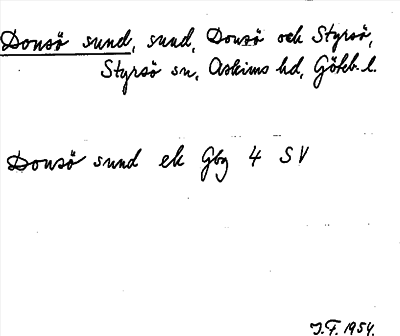 Donsö sund, sund, Donsö och Styrsö,
Styrsö sn, Askims hd, Göteb. l.
Donsö sund ek Gbg 4 SV
J.F. 1954.